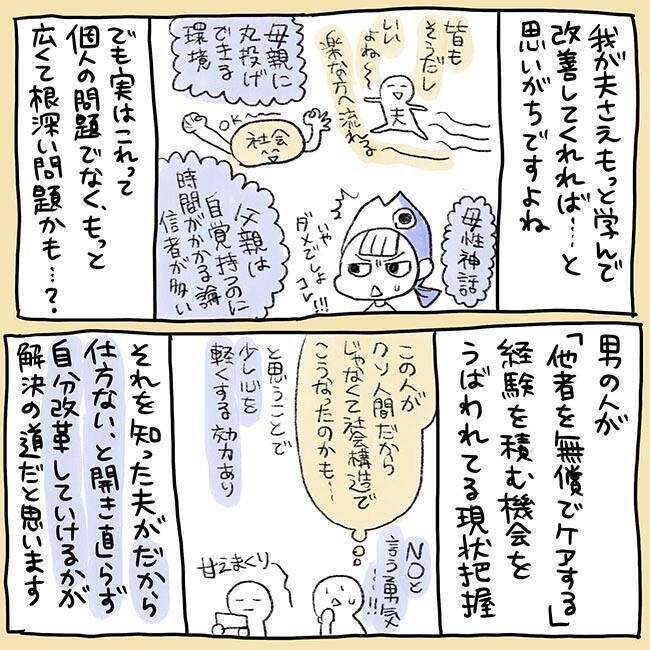 我が夫さえもっと学んで
改善してくれれば…と
思いがちですよね
皆も
そうだし
いい
よね〜
楽な方へ流れる
夫
母親に
丸投げ
できる
環境
OK〜
社会
母性神話
いや
ダメでしょ
コレ!!!
父親は
自覚持つのに
時間がかかる論
信者が多い
でも実はこれって
個人の問題でなく、もっと
広くて根深い問題かも…?
男の人が
「他者を無償でケアする」
経験を積む機会を
うばわれてる現状把握
この人が
クソ人間だから
じゃなくて社会構造で
こうなったのかも…
と思うことで
少し心を
軽くする効力あり
NOと
言う勇気
…!!!
甘えまくり
それを知った夫がだから
仕方ない、と開き直らず
自分改革していけるかが
解決の道だと思います